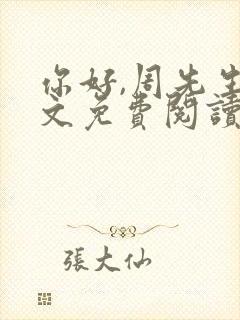 你好,周先生
文免費閱讀
張大仙